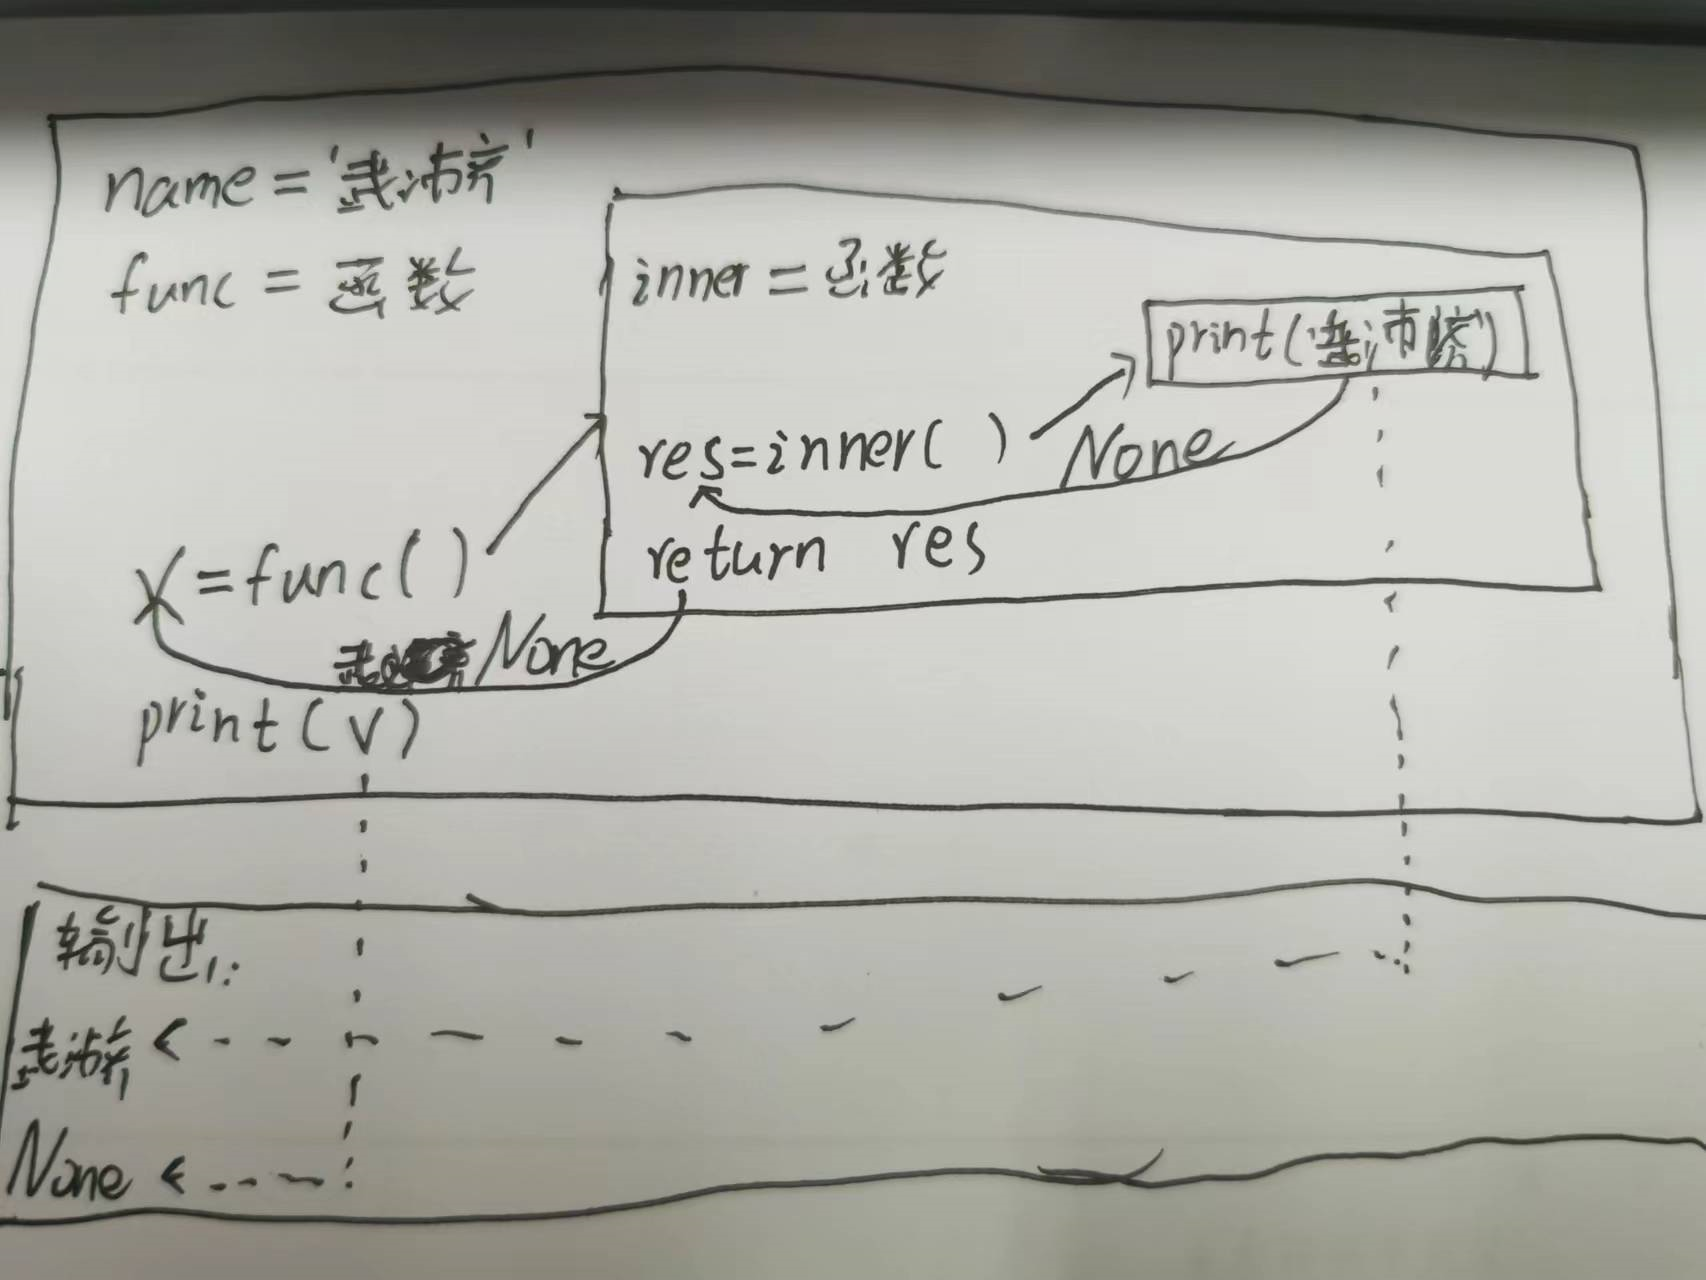 name = '武沛齐'
func = 函数
inner = 函数
print('武沛齐')
res=inner( )
None
return res
v=func( )
None
print(v)
输出:
武沛齐
None